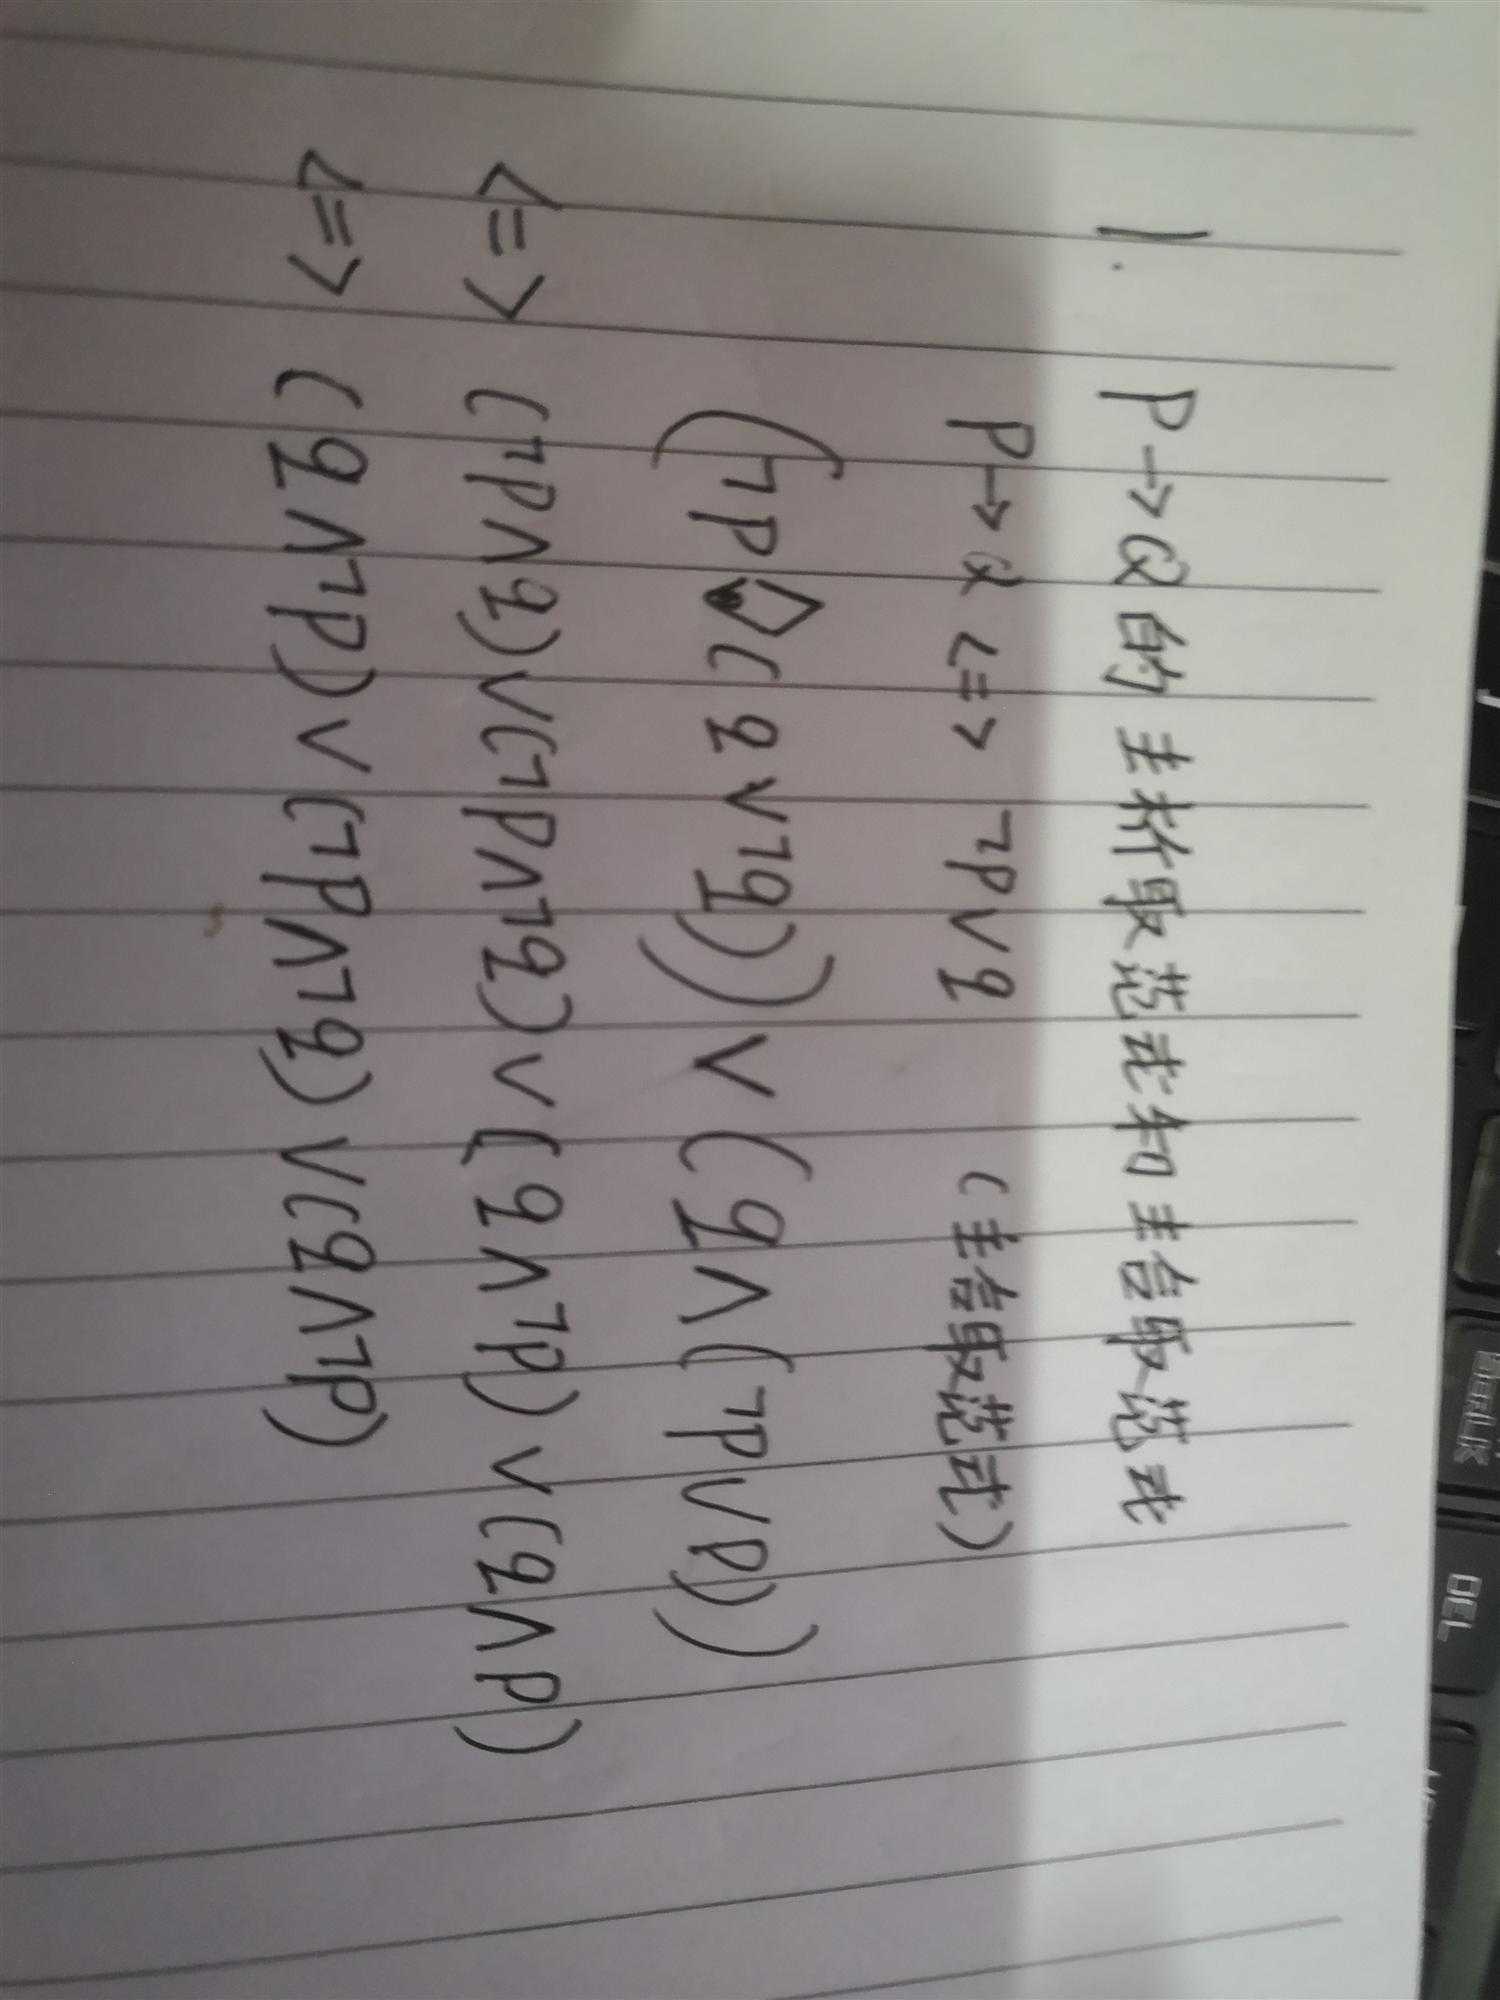 1. P→Q的主析取范式和主合取范式
P→Q <=> ¬p∨q (主合取范式)
(¬p∧(q∨¬q))∨(q∧(¬p∨p))
<=> (¬p∧q)∨(¬p∧¬q)∨(q∧¬p)∨(q∧p)
<=> (q∧¬p)∨(¬p∧¬q)∨(q∧¬p)
DEL